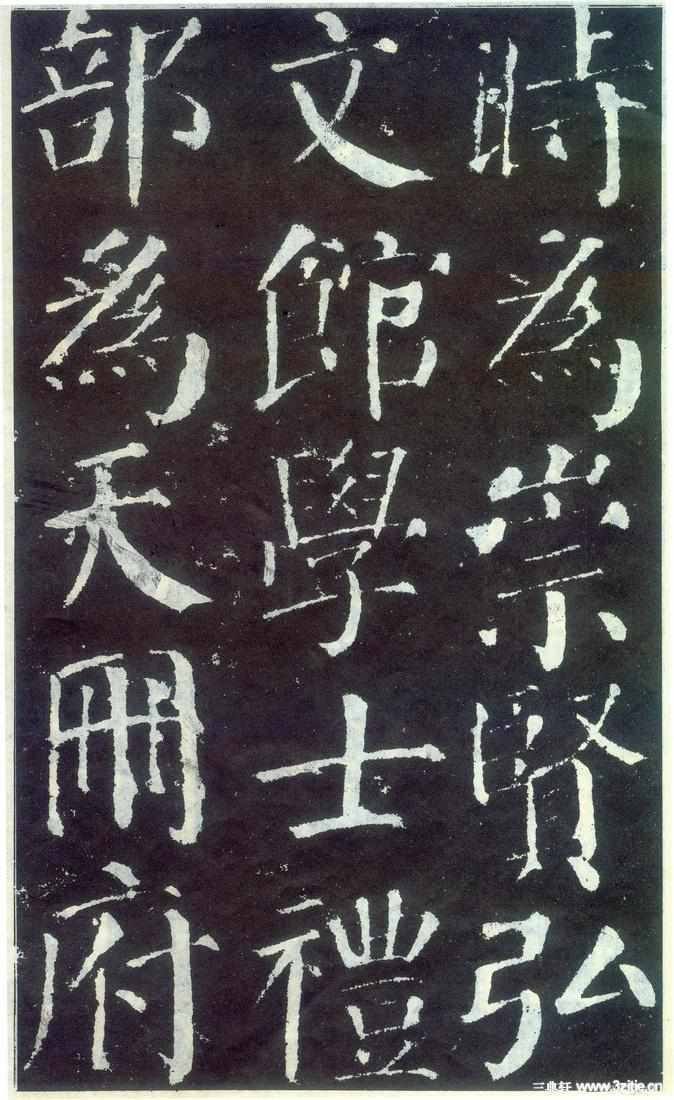 時為崇賢弘
文館學士禮
部為天冊府
三典轩 www.3zitie.cn